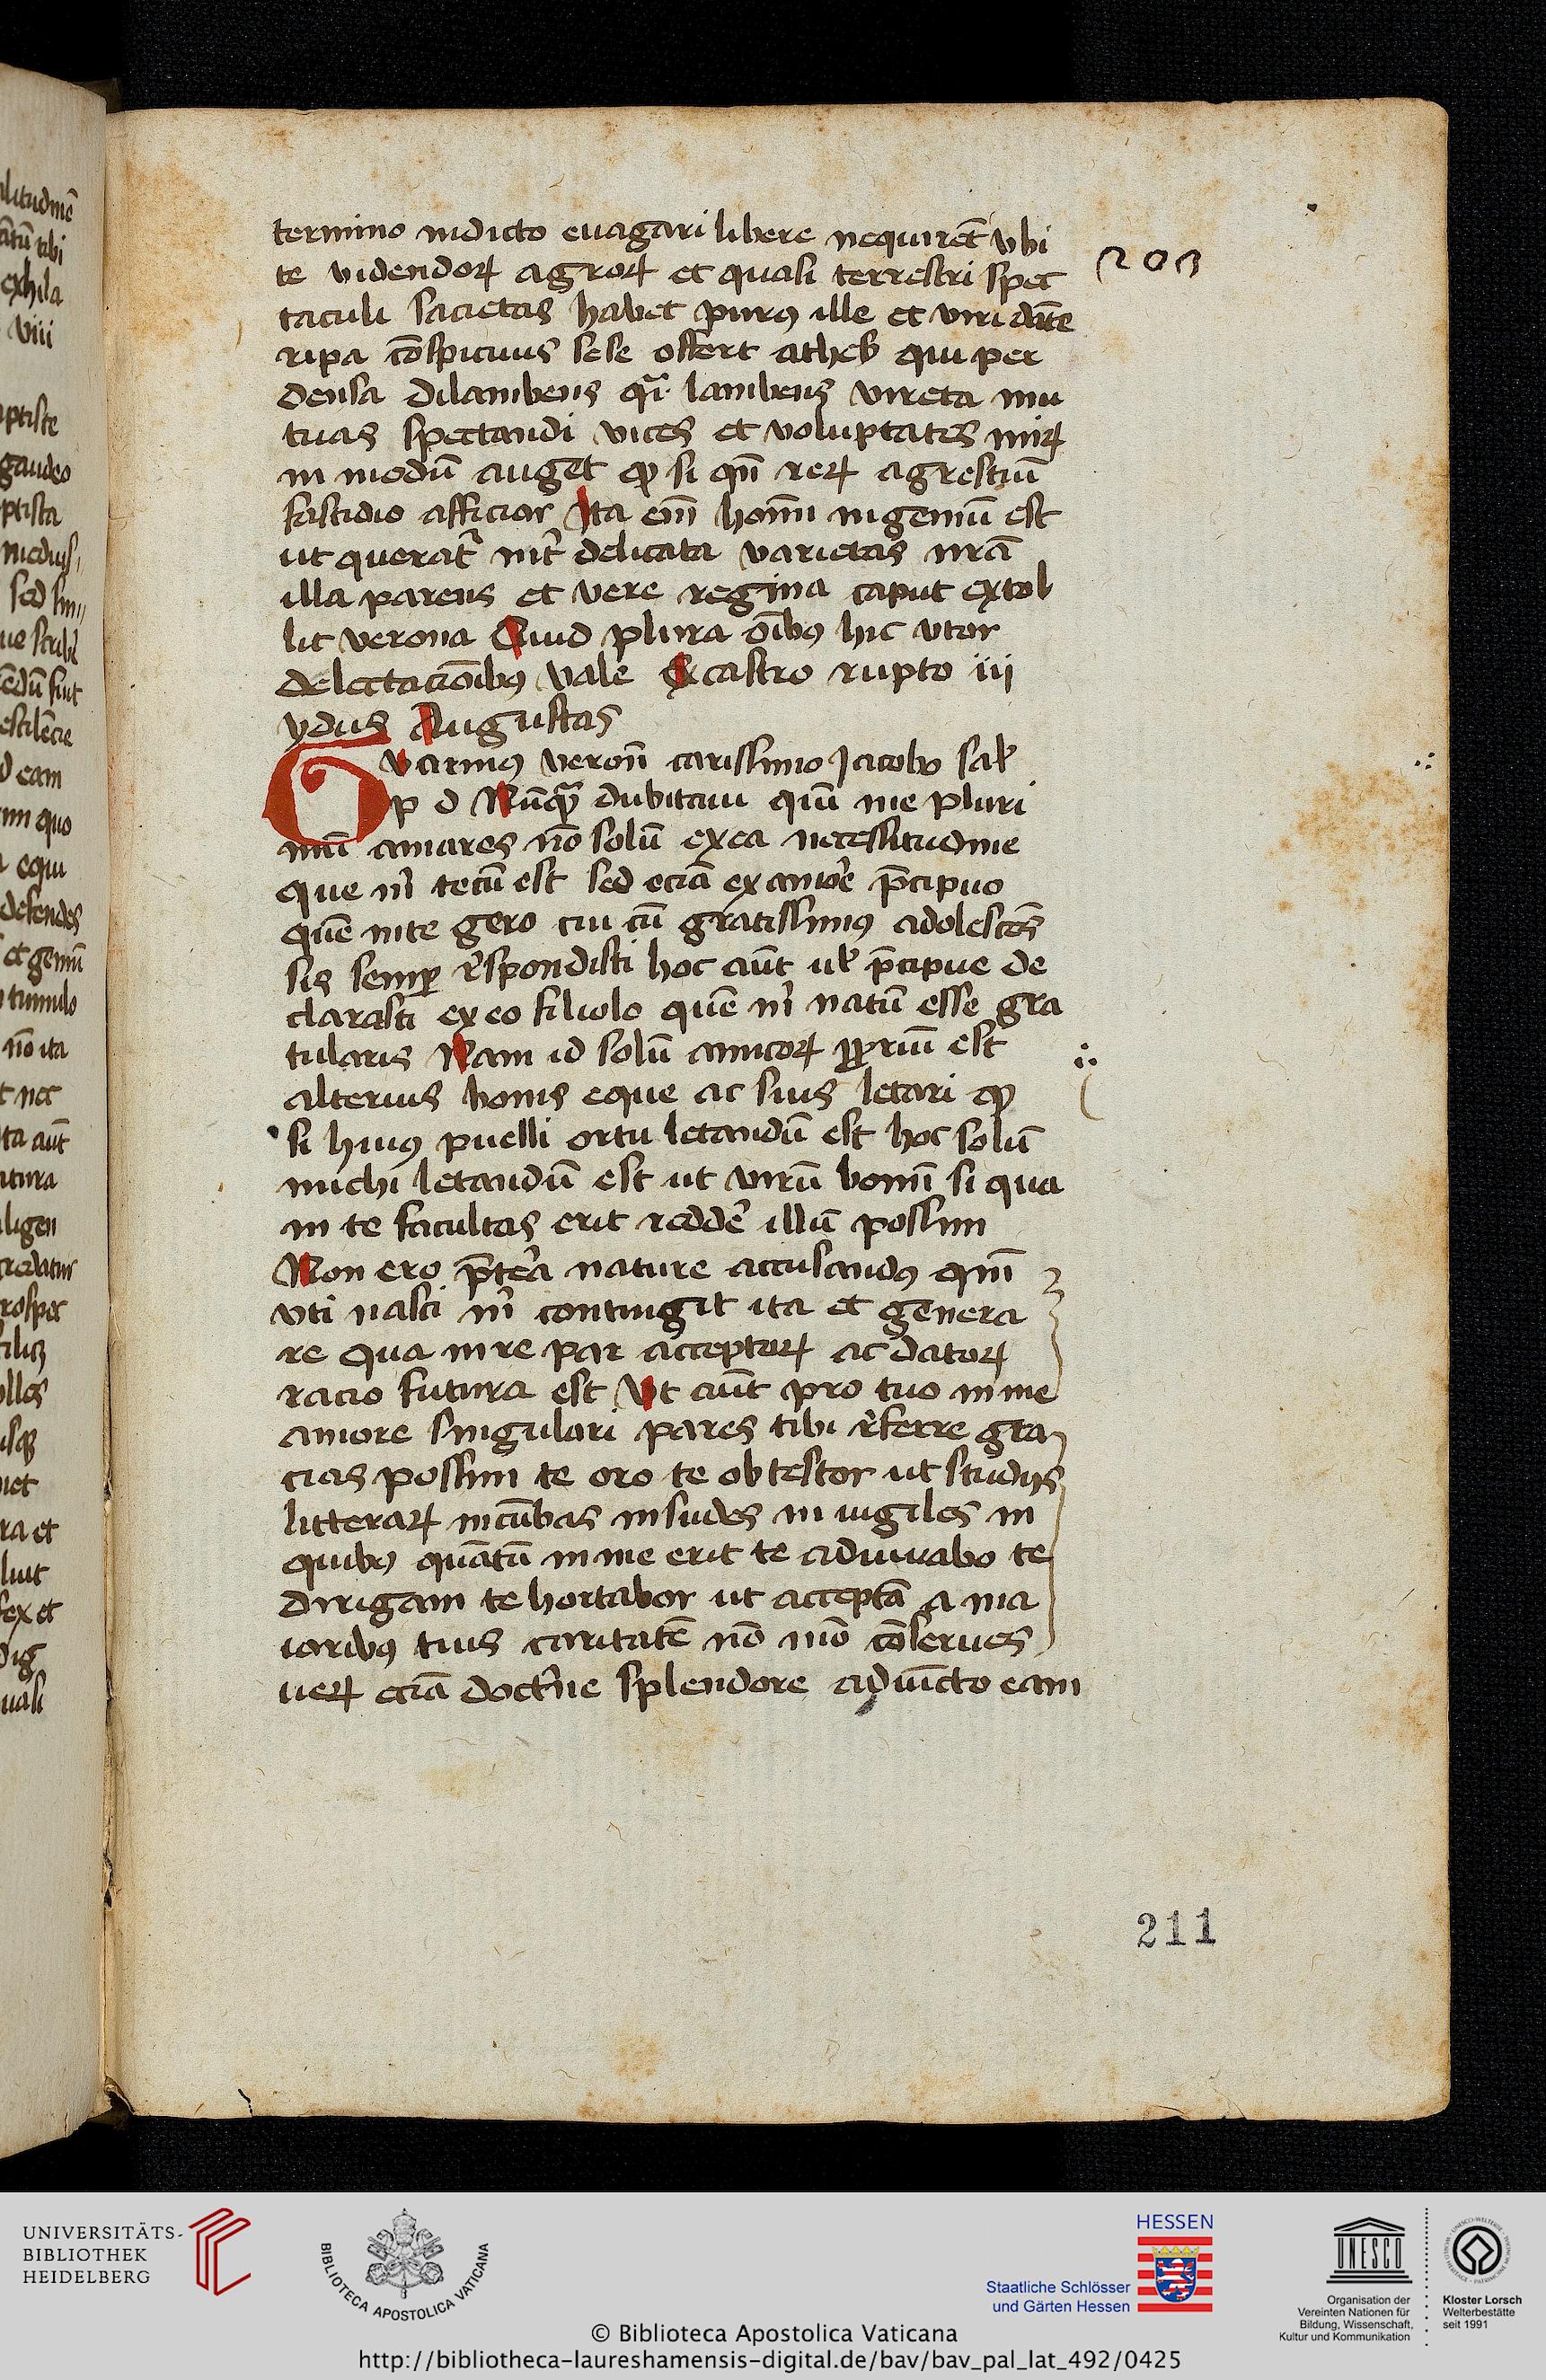 termino indicto euagari libere nequirēt vbi
te videndoꝝ agroꝝ et quasi terrestri spec
taculi sacietas habet purꝰ ille et viridāte
ripa cōspicuus sese offert atheß qui per
densa dilambens lambens vireta mu
tuas spectandi vices et voluptates miꝝ
in modū auget ꝙ si qn̄ reꝝ agrestiū
fastidio afficior Ita em̄ homī ingeniū est
ut querat᷑ int᷑ delicata varietas nr̄a
illa parens et vere regina caput extol
lit verona Quid plura oībꝰ hic vtor
delectacōībꝰ vale Ex castro rupto iij
ydus Augustas
Gvarinus veron̄ carissimo Jacobo sal̓
p d Nūqꝫ dubitaui quī me pluri
mū amares nō solū ex ea necessitudine
que m̄ tecū est sed eciā ex amor̄e p̄cipuo
quē in te gero cui cū gratissimꝰ adolescēs
sis semꝑ r̄spondisti hoc aūt ul̓ p̄cipue de
clarasti ex eo filiolo quē m̄ natū esse gra
tularis Nam id solū amicoꝝ ꝓpriū est
alterius bonis eque ac suis letari ꝙ
si huiꝰ puelli ortu letandū est hoc solū
michi letandū est ut virū bonū si qua
in te facultas erit redder̄ illū possim
Non ero p̄ter̄a nature accusandꝰ qm̄
vti nasci m̄ contingit ita et genera
re qua in re par acceptoꝝ ac datoꝝ
racio futura est Vt aūt pro tuo in me
amore singulari pares tibi r̄ferre gra
cias possim te oro te obtestor ut studijs
litteraꝝ incūbas insudes in uigiles in
quibꝰ quātū in me erit te adiuuabo te
dirigam te hortabor ut acceptā a ma
ioribꝰ tuis caritatē nō mō cōserues
ueꝝ eciā doct᷑ne splendore adiūcto eam
203
211
alitudinē
tibi
exhila
viii
ptiste
gaudeo
ptista
UNIVERSITÄTS-
BIBLIOTHEK
HEIDELBERG
BIBLIOTECA APOSTOLICA VATICANA
HESSEN
Staatliche Schlösser
und Gärten Hessen
UNESCO
Organisation der
Vereinten Nationen für
Bildung, Wissenschaft,
Kultur und Kommunikation
Kloster Lorsch
Welterbestätte
seit 1991
© Biblioteca Apostolica Vaticana
http://bibliotheca-laureshamensis-digital.de/bav/bav_pal_lat_492/0425